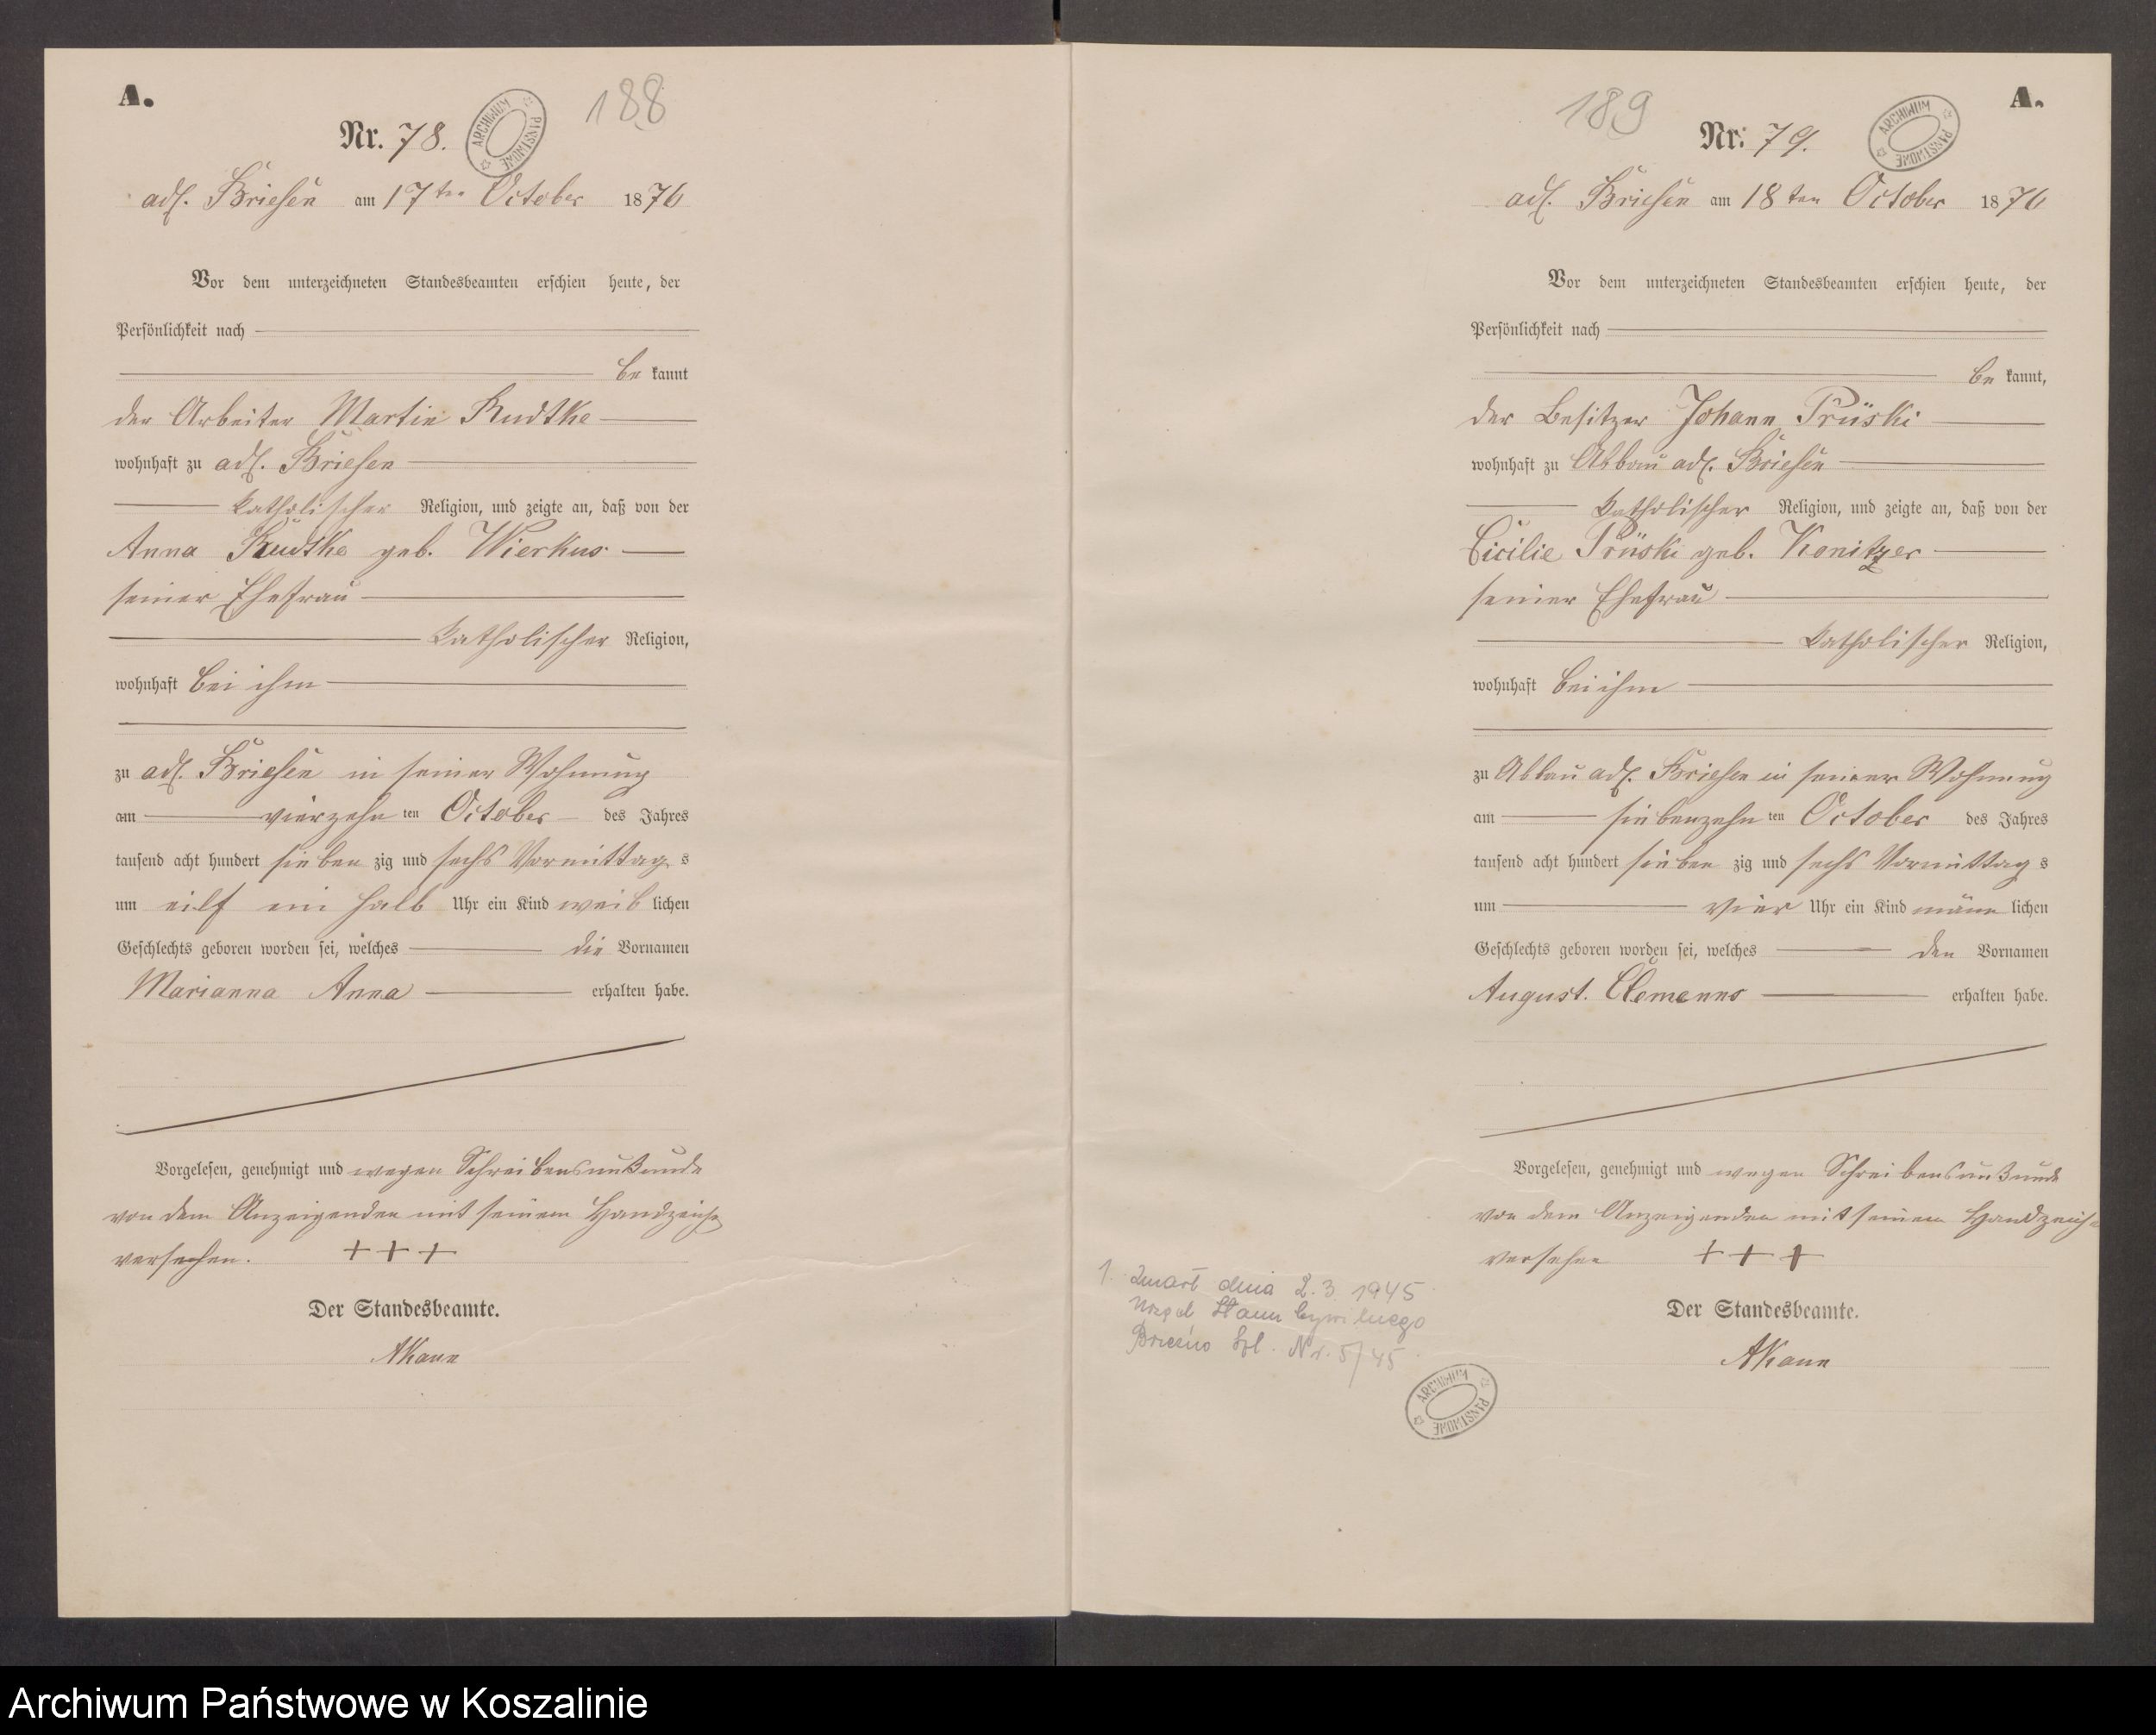 A.
Nr. 78.
188
ARCHIWUM PAŃSTWOWE
adl. Briesen am 17ten October 1876
Vor dem unterzeichneten Standesbeamten erschien heute, der
Persönlichkeit nach
be kannt
der Arbeiter Martin Rudtke
wohnhaft zu adl. Briesen
katholischer Religion, und zeigte an, daß von der
Anna Rudtke geb. Wierkus
seiner Ehefrau
katholischer Religion,
wohnhaft bei ihm
zu adl. Briesen in seiner Wohnung
am vierzehn ten October des Jahres
tausend acht hundert sieben zig und sechs Vormittag s
um eilf ein halb Uhr ein Kind weib lichen
Geschlechts geboren worden sei, welches die Vornamen
Marianna Anna erhalten habe.
Vorgelesen, genehmigt und wegen Schreibensunkunde
von dem Anzeigenden mit seinem Handzeichen
versehen. +++
Der Standesbeamte.
AKann
189
A.
Nr. 79.
ARCHIWUM PAŃSTWOWE
adl. Briesen am 18ten October 1876
Vor dem unterzeichneten Standesbeamten erschien heute, der
Persönlichkeit nach
be kannt,
der Besitzer Johann Prüski
wohnhaft zu Abbau adl. Briesen
katholischer Religion, und zeigte an, daß von der
Cicilie Prüski geb. Konitzer
seiner Ehefrau
katholischer Religion,
wohnhaft bei ihm
zu Abbau adl. Briesen in seiner Wohnung
am siebenzehn ten October des Jahres
tausend acht hundert sieben zig und sechs Vormittag s
um vier Uhr ein Kind männ lichen
Geschlechts geboren worden sei, welches den Vornamen
August. Clemenns erhalten habe.
Vorgelesen, genehmigt und wegen Schreibensunkunde
von dem Anzeigenden mit seinem Handzeichen
versehen +++
Der Standesbeamte.
AKann
1. Zmarł dnia 2.3.1945
Urząd Stanu Cywilnego
Brzeźno Szl. Nr. 5/45
ARCHIWUM PAŃSTWOWE
Archiwum Państwowe w Koszalinie